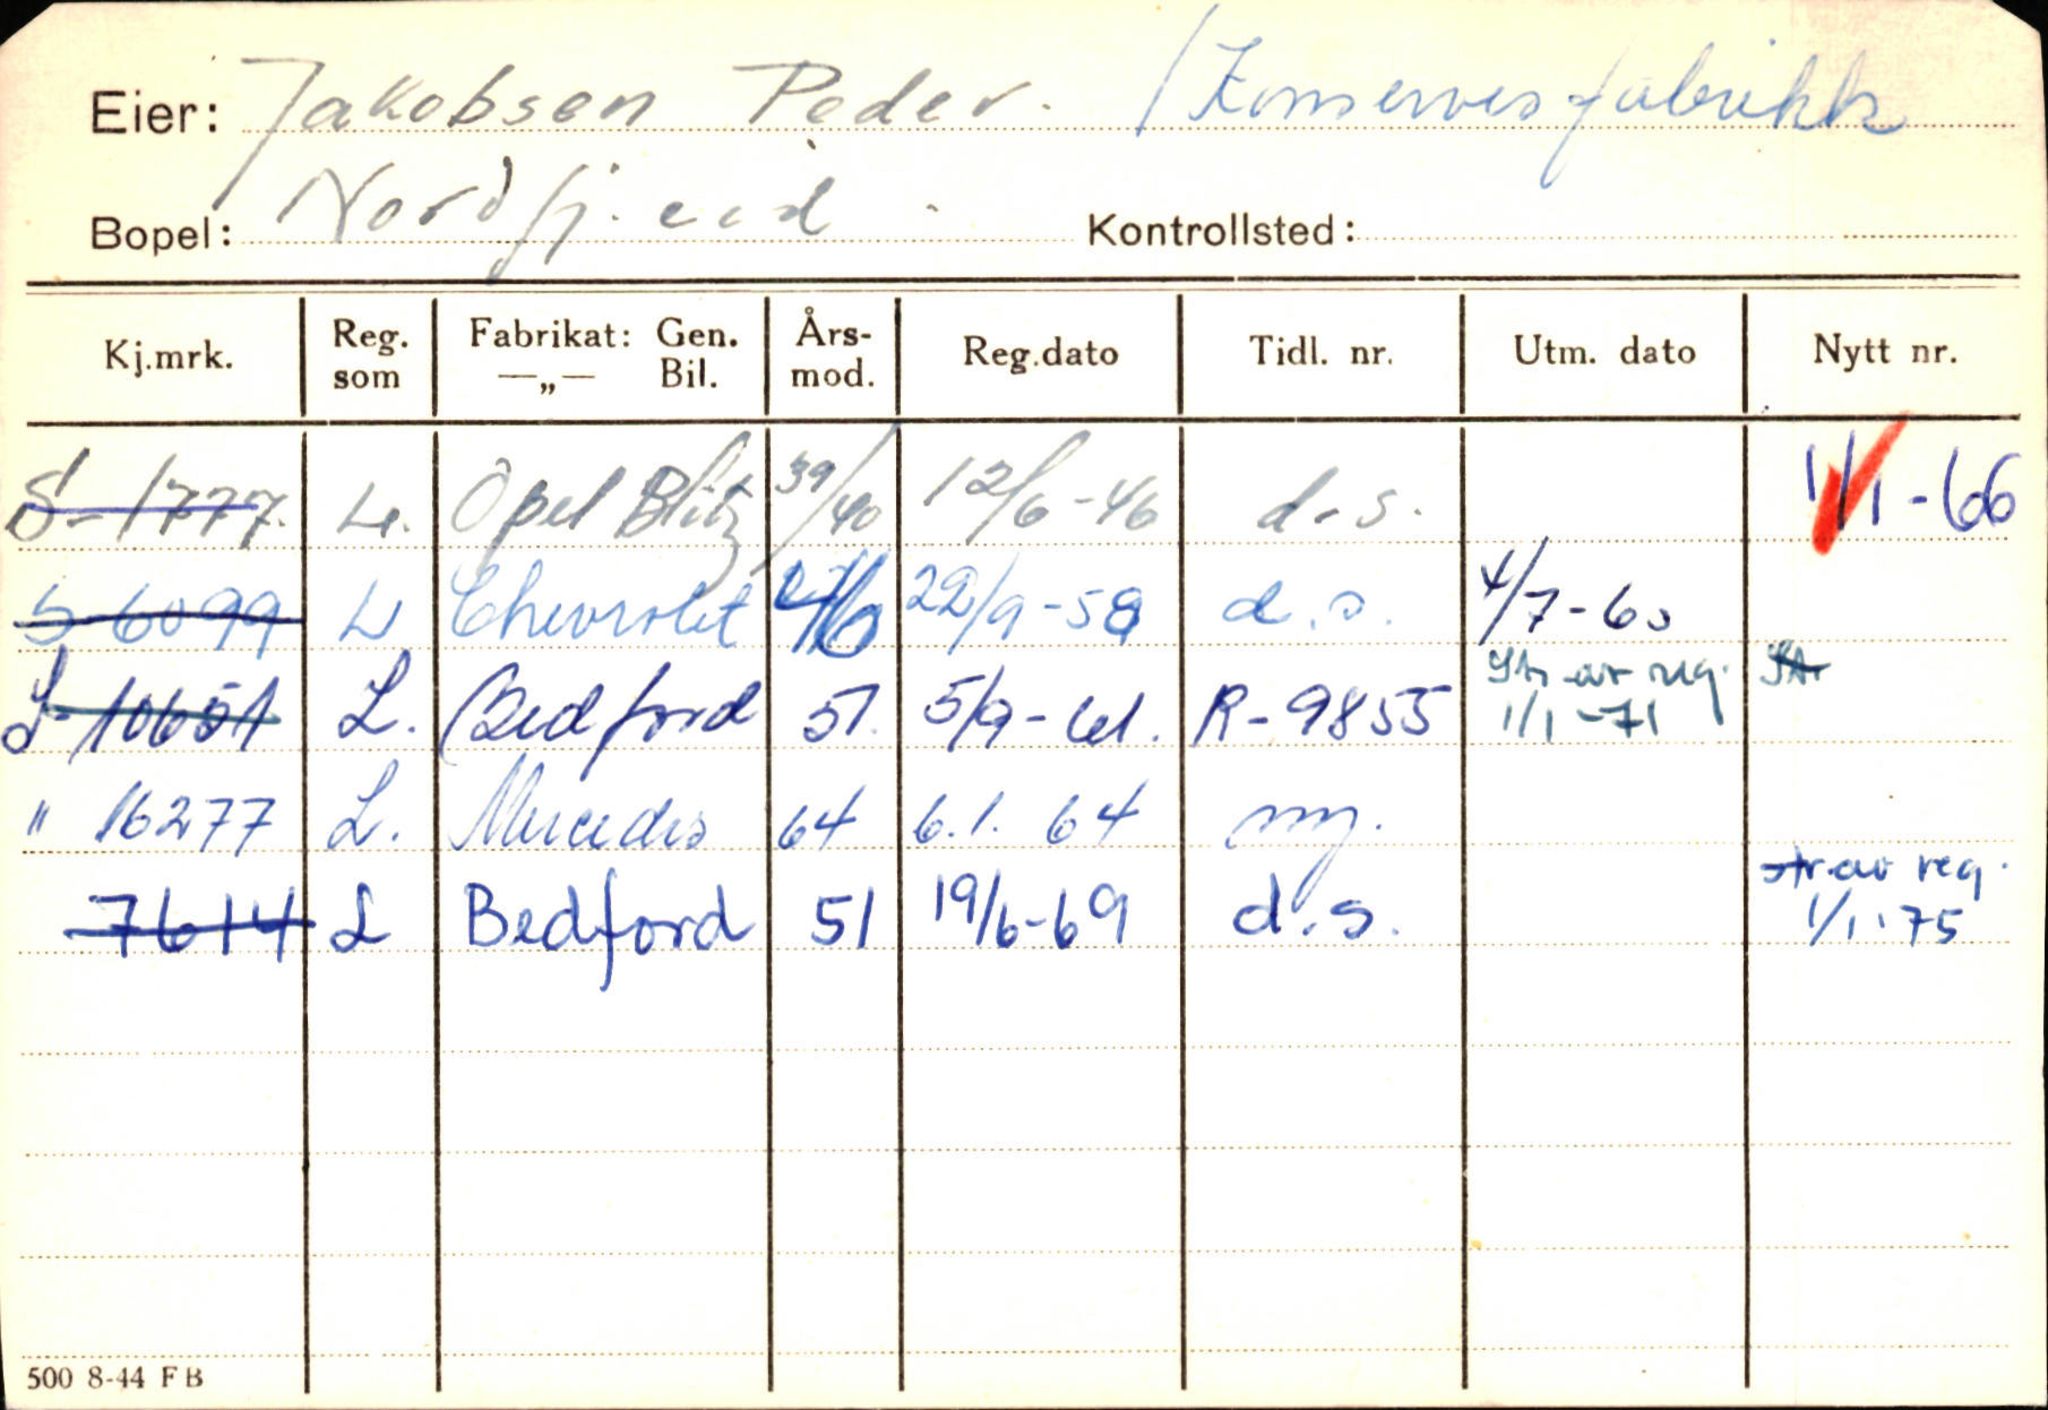 Eier: Jakobsen Peder. / Konservesfabrikk
Bopel: Nordfj.eid Kontrollsted:
Kj.mrk. Reg. som Fabrikat: Gen. —„— Bil. Års-mod. Reg.dato Tidl. nr. Utm. dato Nytt nr.
S-1777. L. Opel Blitz 39/40 12/6-46 d.s. 1/1-66
S 6099 L Chevrolet 22/9-59 d.s. 4/7-60
S-10651 L. Bedford 51. 5/9-61. R-9855 Str av reg. 1/1-71 Str
" 16277 L. Mercedes 64 6.1.64 ny.
7614 L Bedford 51 19/6-69 d.s. str.av reg. 1/1.75
500 8-44 FB